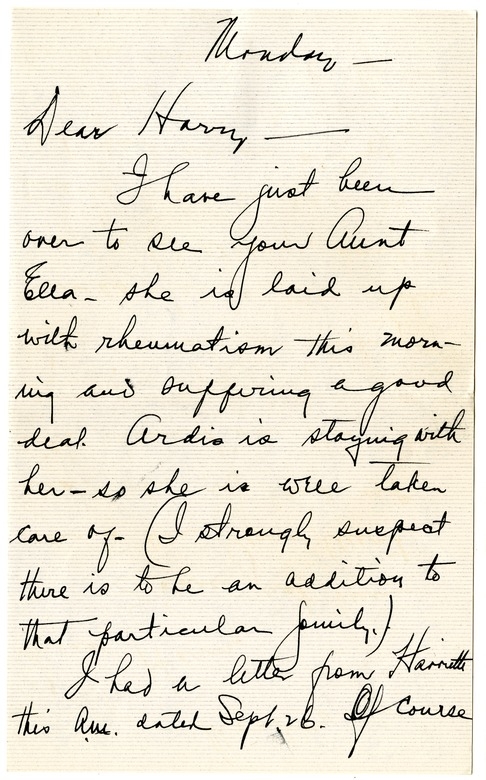 Monday —
Dear Harry —
I have just been
over to see your Aunt
Ella - she is laid up
with rheumatism this morn-
ing and suffering a good
deal. Ardis is staying with
her - so she is well taken
care of - (I strongly suspect
there is to be an addition to
that particular family.)
I had a letter from Harriette
this am. dated Sept. 26. Of course